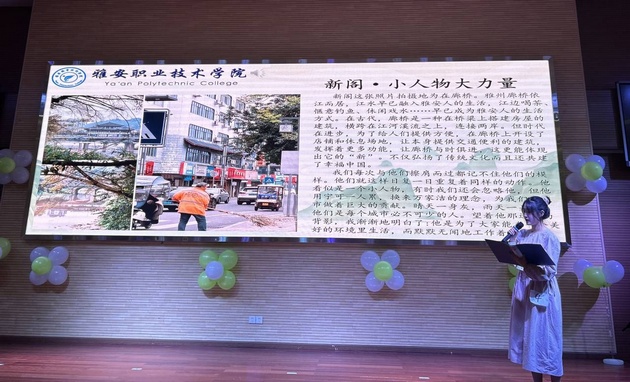 雅安职业技术学院
Ya'an Polytechnic College
新阁·小人物大力量
新阁这张照片拍摄地为在廊桥，雅州廊桥依
江而居，江水早已融入雅安人的生活，江边喝茶、
惬意钓鱼、休闲戏水……早已成为雅安人的生活方
式。在古代，廊桥是一种在桥梁上搭建房屋的
建筑，横跨在江河溪流之上，连接两岸。但时代
在进步，为了给人们提供方便，在廊桥上开设了
店铺和休息场地，让本身提供交通便利的建筑，
发挥着更多功能，廊桥与时俱进，这更能体现
出它的“新”，不仅弘扬了传统文化而且还共建
了幸福中国。
我们每次与他们擦肩而过都记不住他们的模
样，他们就这样日复一日重复着同样的动作，他
看似是一个小人物，有时我们还会忽略他，但他
用宁可一人累，换来万家洁的理念，为我们
市做着巨大的贡献，晴天一身灰，雨天一
他们是每个城市必不可少的人。望着他那
背影，我渐渐地明白了:他是为了大家能
好的环境里生活，而默默无闻地工作着